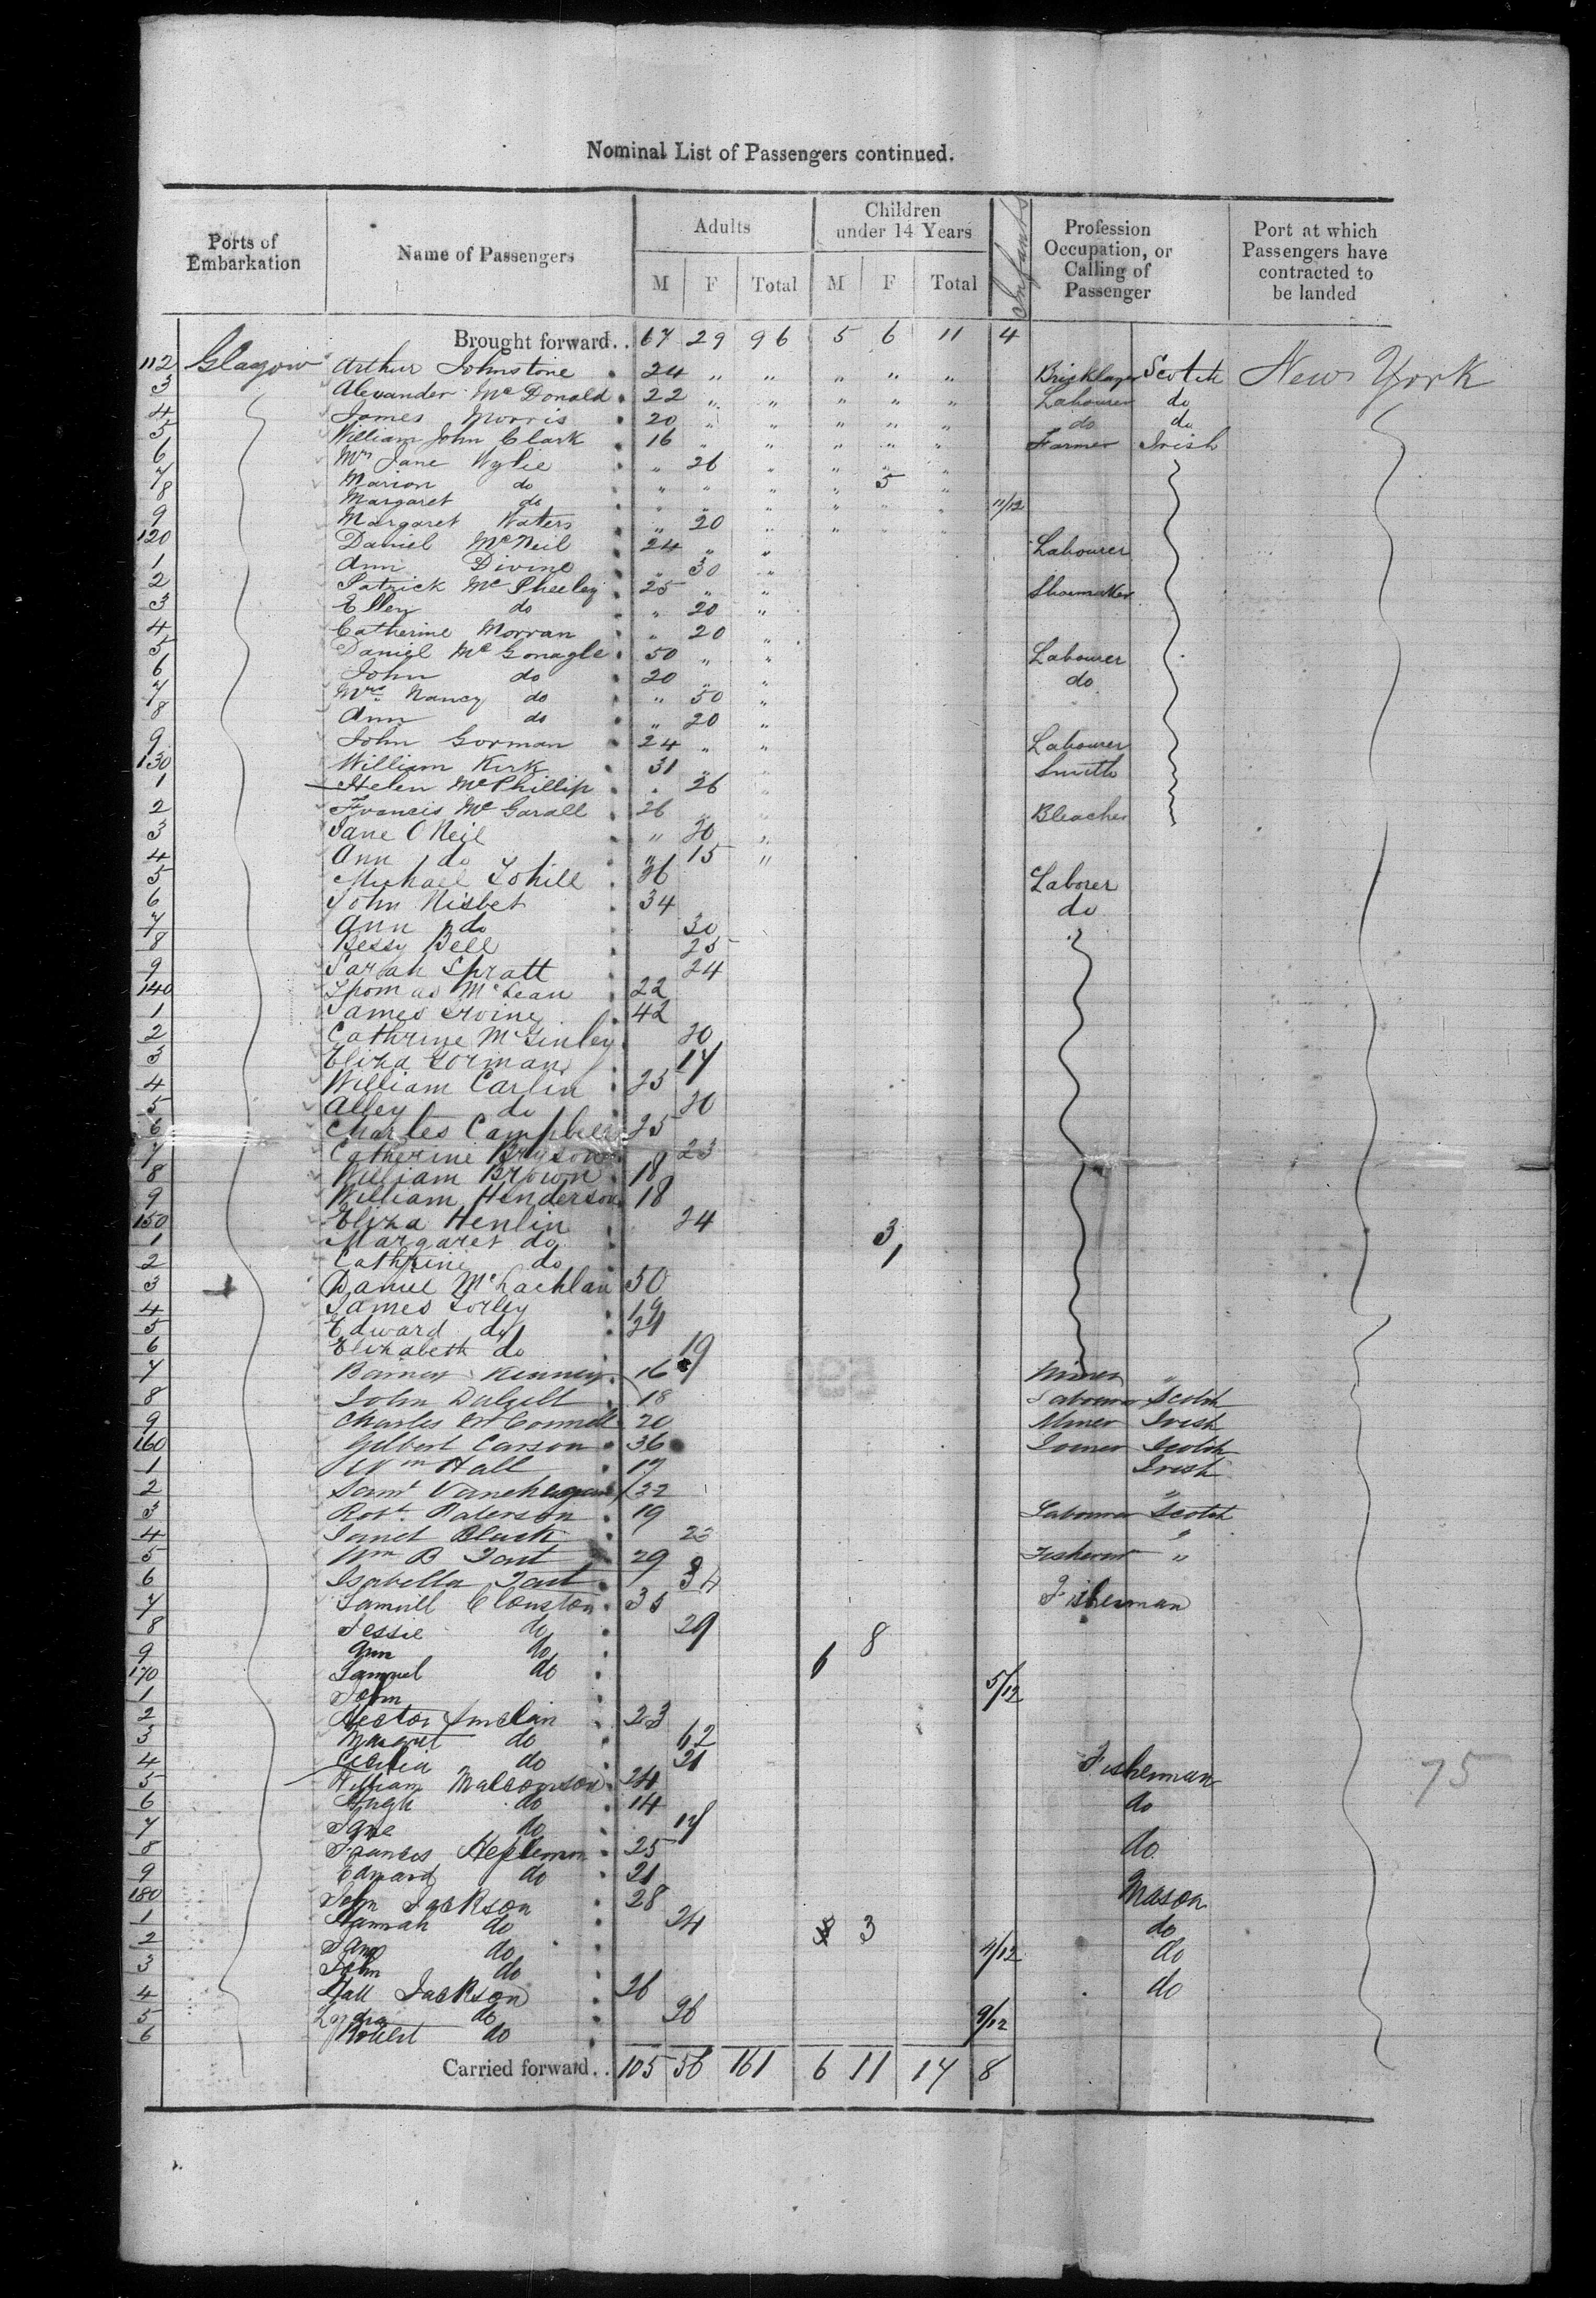 Nominal List of Passengers continued.
Ports of Embarkation Name of Passengers Adults M F Total Children under 14 Years M F Total Infants Profession Occupation, or Calling of Passenger Port at which Passengers have contracted to be landed
Brought forward.. 67 29 96 5 6 11 4
112 Glasgow Arthur Johnstone 24 " " " " " Bricklayer Scotch New York
3 Alexander McDonald 22 " " " " " Labourer do
4 James Morris 20 " " " " " do do
5 William John Clark 16 " " " " " Farmer Irish
6 Mrs Jane Wylie " 26 " " " "
7 Marion do " " " " 5 "
8 Margaret do " " " " " " 11/12
9 Margaret Waters " 20 " " " "
120 Daniel McNeil 24 " " Labourer
1 Ann Divine " 30 "
2 Patrick McPheeley 25 " " Shoemaker
3 Ellen do " 20 "
4 Catherine Morran " 20 "
5 Daniel McGonagle 50 " " Labourer
6 John do 20 " " do
7 Mrs Nancy do " 50 "
8 Ann do " 20 "
9 John Gorman 24 " " Labourer
130 William Kirk 31 " " Smith
1 Helen McPhillip " 26 "
2 Francis McGarall 26 " " Bleacher
3 Jane O'Neil " 20 "
4 Ann do " 15 "
5 Michael Tohill 26 Laborer
6 John Nisbet 34 do
7 Ann do 30
8 Bessy Bell 25
9 Sarah Spratt 24
140 Thomas McLean 22
1 James Irvine 42
2 Cathrine McGinley 20
3 Eliza Gorman 17
4 William Carlin 25
5 Alley do 20
6 Charles Campbell 25
7 Catherine Bryson 23
8 William Brown 18
9 William Henderson 18
150 Eliza Henlin 24
1 Margaret do 3
2 Cathrine do 1
3 Daniel McLachlan 50
4 James Torley 19
5 Edward do 21
6 Elizabeth do 19
7 Barney Kenney 16 Miner "
8 John Dalzell 18 Labourer Scotch
9 Charles McConnell 20 Miner Irish
160 Gilbert Carson 36 Joiner Scotch
1 Wm Hall 17 Irish
2 Saml 32 "
3 Robt. Paterson 19 Labourer Scotch
4 Janet Black 23 "
5 Wm B Tait 29 "
6 Isabella Tait 34
7 Samuel Clouston 35 Fisherman
8 Jessie do 29
9 Ann do 8
170 Samuel do 6
1 John 5/12
2 Hector 23
3 Margret do 62
4 Cecilia do 21
5 William Malcomson 24 Fisherman
6 Hugh do 14 do
7 Jane do 17
8 Francis 25 do
9 Edward do 21
180 John Jackson 28 Mason
1 Hannah do 24 do
2 Jane do 3 do
3 John do 4/12
4 Hall Jackson 26 do
5 do 26
6 Robert do 9/12
75
Carried forward.. 105 56 161 6 11 17 8